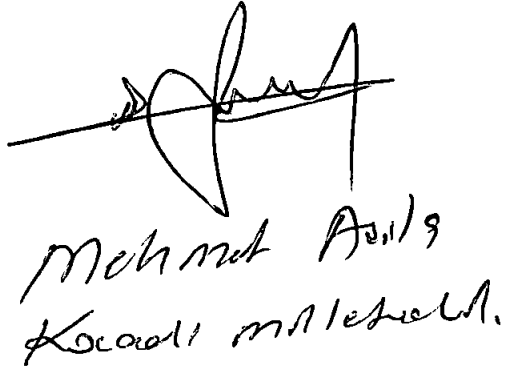 Mehmet Aşıla
Kocaeli milletvekili.